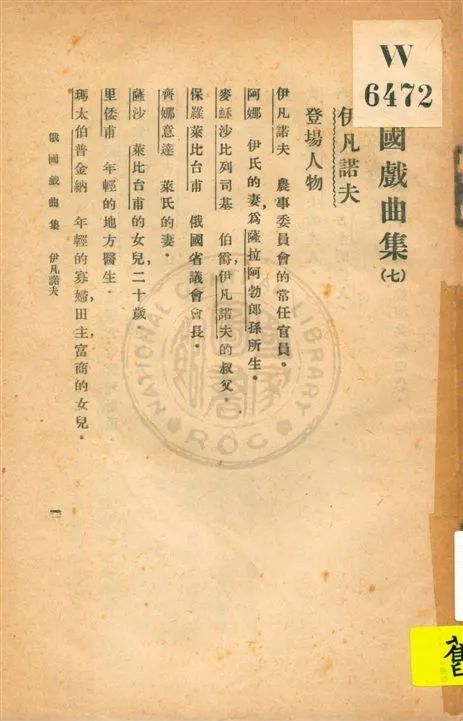 W
6472
國戲曲集(七)
伊凡諾夫
登場人物
伊凡諾夫 農事委員會的常任官員。
阿娜 伊氏的妻，爲薩拉阿勃郎孫所生。
麥穌沙比列司基 伯爵，伊凡諾夫的叔父。
保羅萊比台甫 俄國省議會會長。
齊娜意達 萊氏的妻。
薩沙 萊比台甫的女兒，二十歲。
里倭甫 年輕的地方醫生。
瑪太伯普金納 年輕的寡婦，田主，富商的女兒。
俄國戲曲集 伊凡諾夫
一
NATIONAL CENTRAL LIBRARY
ROC
舊